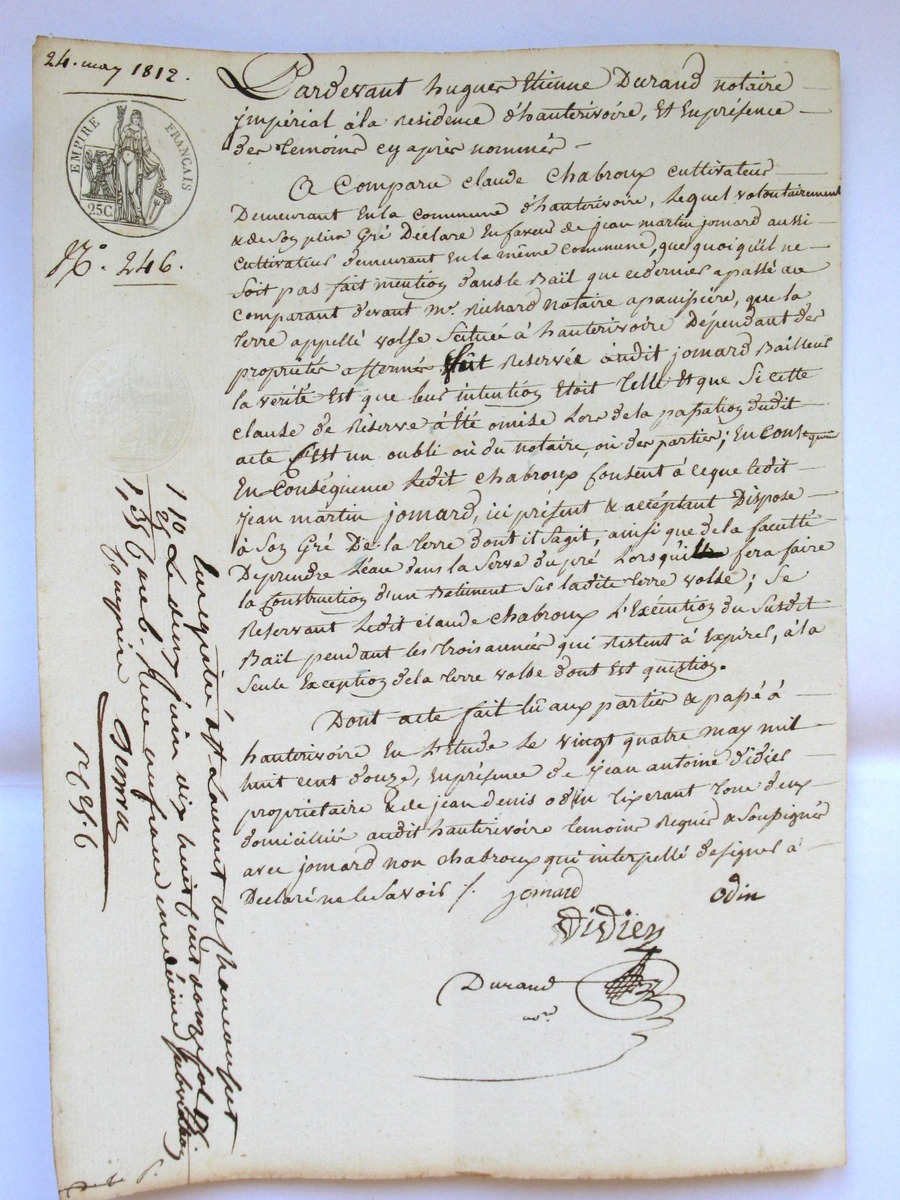 24. may 1812.
EMPIRE FRANÇAIS
25C
N.º 246.
Pardevant hugues Etienne Durand notaire
jmpérial à la Residence d'hauterivoire, Et En présence
des temoins cy après nommés
A Comparu claude Chabroux cultivateur
Demeurant En la commune d'hauterivoire, Lequel volontairement
& de Son plein Gré Déclare En faveur de jean martin jomard aussi
cultivateur demeurant En la même Commune, que quoiqu'il ne
Soit pas fait mention dans le Bail que ce dernier a passé au
Comparant devant Mr. Richard Notaire a panissière, que la
terre appellé volse Scituée à hauterivoire Dépendant des
propriétés affermés fût Reservée audit jomard Bailleur
la verité Est que leur intention Etoit telle Et que Si cette
clause de Réserve à Eté omise Lors de la passation dudit
acte C'Est un oubli ou du notaire, ou des parties; En Conse
En Conséquence Ledit chabroux Consent à ceque ledit
Jean martin jomard, ici présent & accéptant Dispose
à Son Gré De la terre dont il Sagit, ainsi que de la faculté
De prendre Léau dans la Serve du pré Lorsqu'il fera faire
la Construction d'un Batiment Sur ladite terre volse; Se
Reservant Ledit claude chabroux L'Exécution du Susdit
Bail pendant les trois années qui Restent à Expirer, à la
Seule Exception de la terre volse dont Est question.
Dont acte fait lû aux parties & passé à
hauterivoire En L'Etude Le vingt quatre may mil
huit cent douze, En présence de jean antoine didier
propriétaire & de jean denis odin tixerant tous deux
domiciliés audit hauterivoire temoins Requis & Soussignés
avec jomard non chabroux qui interpellé de signer à
Déclaré ne le Savoir /.
jomard
odin
Didier
Durand
nre
Enregistré à St Laurent de Chamousset
Le deux juin dix huit cent douze fol